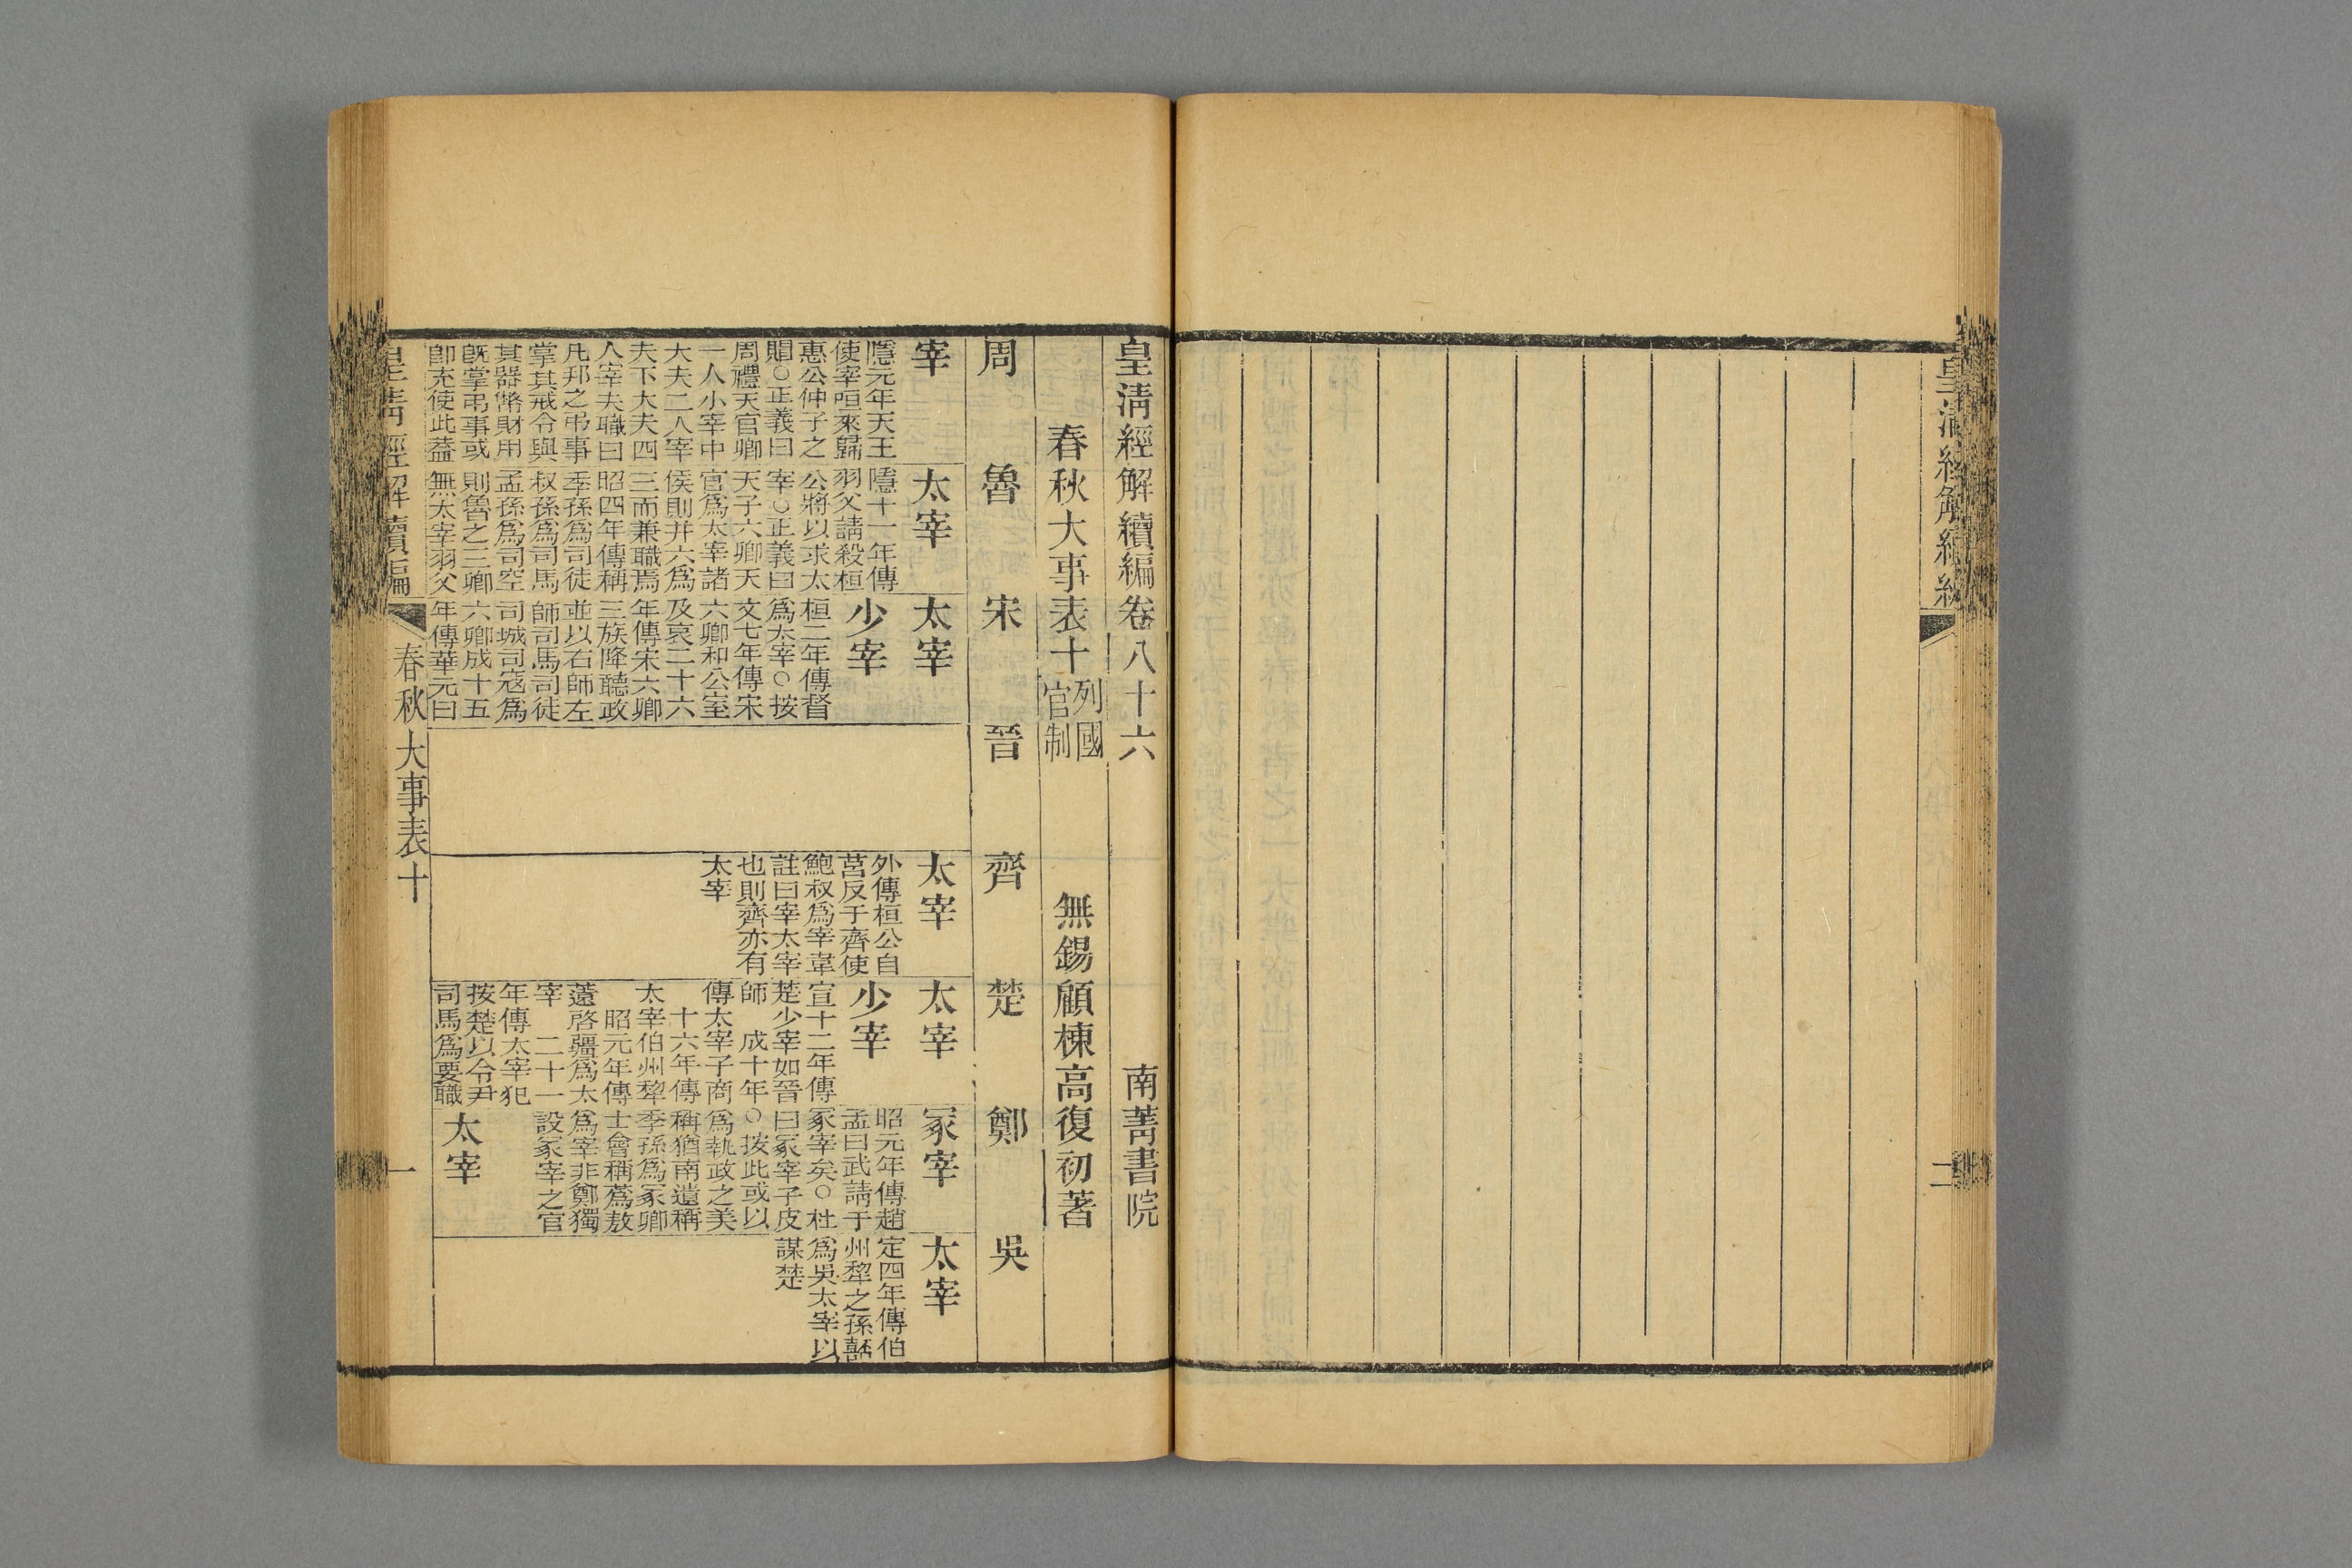 皇清經解續編
二
皇清經解續編卷八十六
南菁書院
春秋大事表十
列國
官制
無錫顧棟高復初著
周
魯
宋
晉
齊
楚
鄭
吳
宰
隱元年天王
使宰咺來歸
惠公仲子之
賵○正義曰
周禮天官卿
一人小宰中
大夫二人宰
夫下大夫四
人宰夫職曰
凡邦之弔事
掌其戒令與
其器幣財用
旣掌弔事或
卽充使此蓋
太宰
隱十一年傳
羽父請殺桓
公將以求太
宰○正義曰
天子六卿天
官爲太宰諸
侯則并六爲
三而兼職焉
昭四年傳稱
季孫爲司徒
叔孫爲司馬
孟孫爲司空
則魯之三卿
無太宰羽父
太宰
少宰
桓二年傳督
爲太宰○按
文七年傳宋
六卿和公室
及哀二十六
年傳宋六卿
三族降聽政
並以右師左
師司馬司徒
司城司寇爲
六卿成十五
年傳華元曰
太宰
外傳桓公自
莒反于齊使
鮑叔爲宰韋
註曰宰太宰
也則齊亦有
太宰
太宰
少宰
宣十二年傳
楚少宰如晉
師　成十年
傳太宰子商
　十六年傳
太宰伯州犂
　昭元年傳
薳啓疆爲太
宰　二十一
年傳太宰犯
按楚以令尹
司馬爲要職
冢宰
昭元年傳趙
孟曰武請于
冢宰矣○杜
曰冢宰子皮
○按此或以
爲執政之美
稱猶南遺稱
季孫爲冢卿
士會稱蔿敖
爲宰非鄭獨
設冢宰之官
太宰
太宰
定四年傳伯
州犂之孫嚭
爲吳太宰以
謀楚
皇清經解續編
春秋大事表十
一